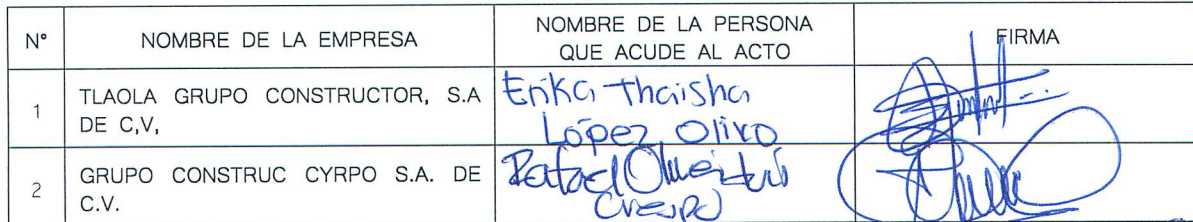 N° NOMBRE DE LA EMPRESA NOMBRE DE LA PERSONA QUE ACUDE AL ACTO FIRMA
1 TLAOLA GRUPO CONSTRUCTOR, S.A
DE C,V,
Erika Thaisha
López Olivo
2 GRUPO CONSTRUC CYRPO S.A. DE
C.V.
Rafael
Crespo